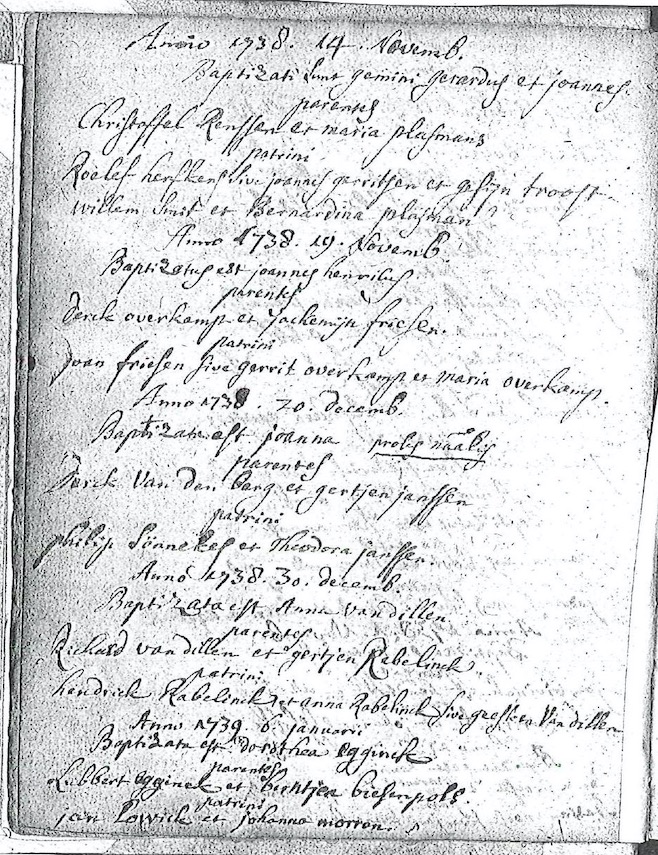 Anno 1738. 14. Novemb.
Baptizati sunt gemini gerardus et joannes.
parentes
Christoffel Renssen et maria plasmans
patrini
Roelef herskens sive joannes gerritsen et gesijn troost
willem smit et Bernardina plasman
Anno 1738. 19. Novemb.
Baptizatus est joannes henricus.
parentes
Derck overkamp et jackemijn friesen.
patrini
joan friesen sive gerrit overkamp et maria overkamp.
Anno 1738. 20. decemb.
Baptizata est joanna proles
parentes
Derck Van den berg et gertjen janssen
patrini
philip Sönnekes et Theodora janssen.
Anno 1738. 30. decemb.
Baptizata est Anna Van dillen
parentes
Richard van dillen et gertjen Rabelinck
patrini
hendrick Rabelinck et anna Rabelinck sive geesken Van dillen
Anno 1739 6. januarii
Baptizata est dorothea Egginck
parentes
Lubbert Egginck et biesenpols.
patrini
jan Lowick et johanna morron.